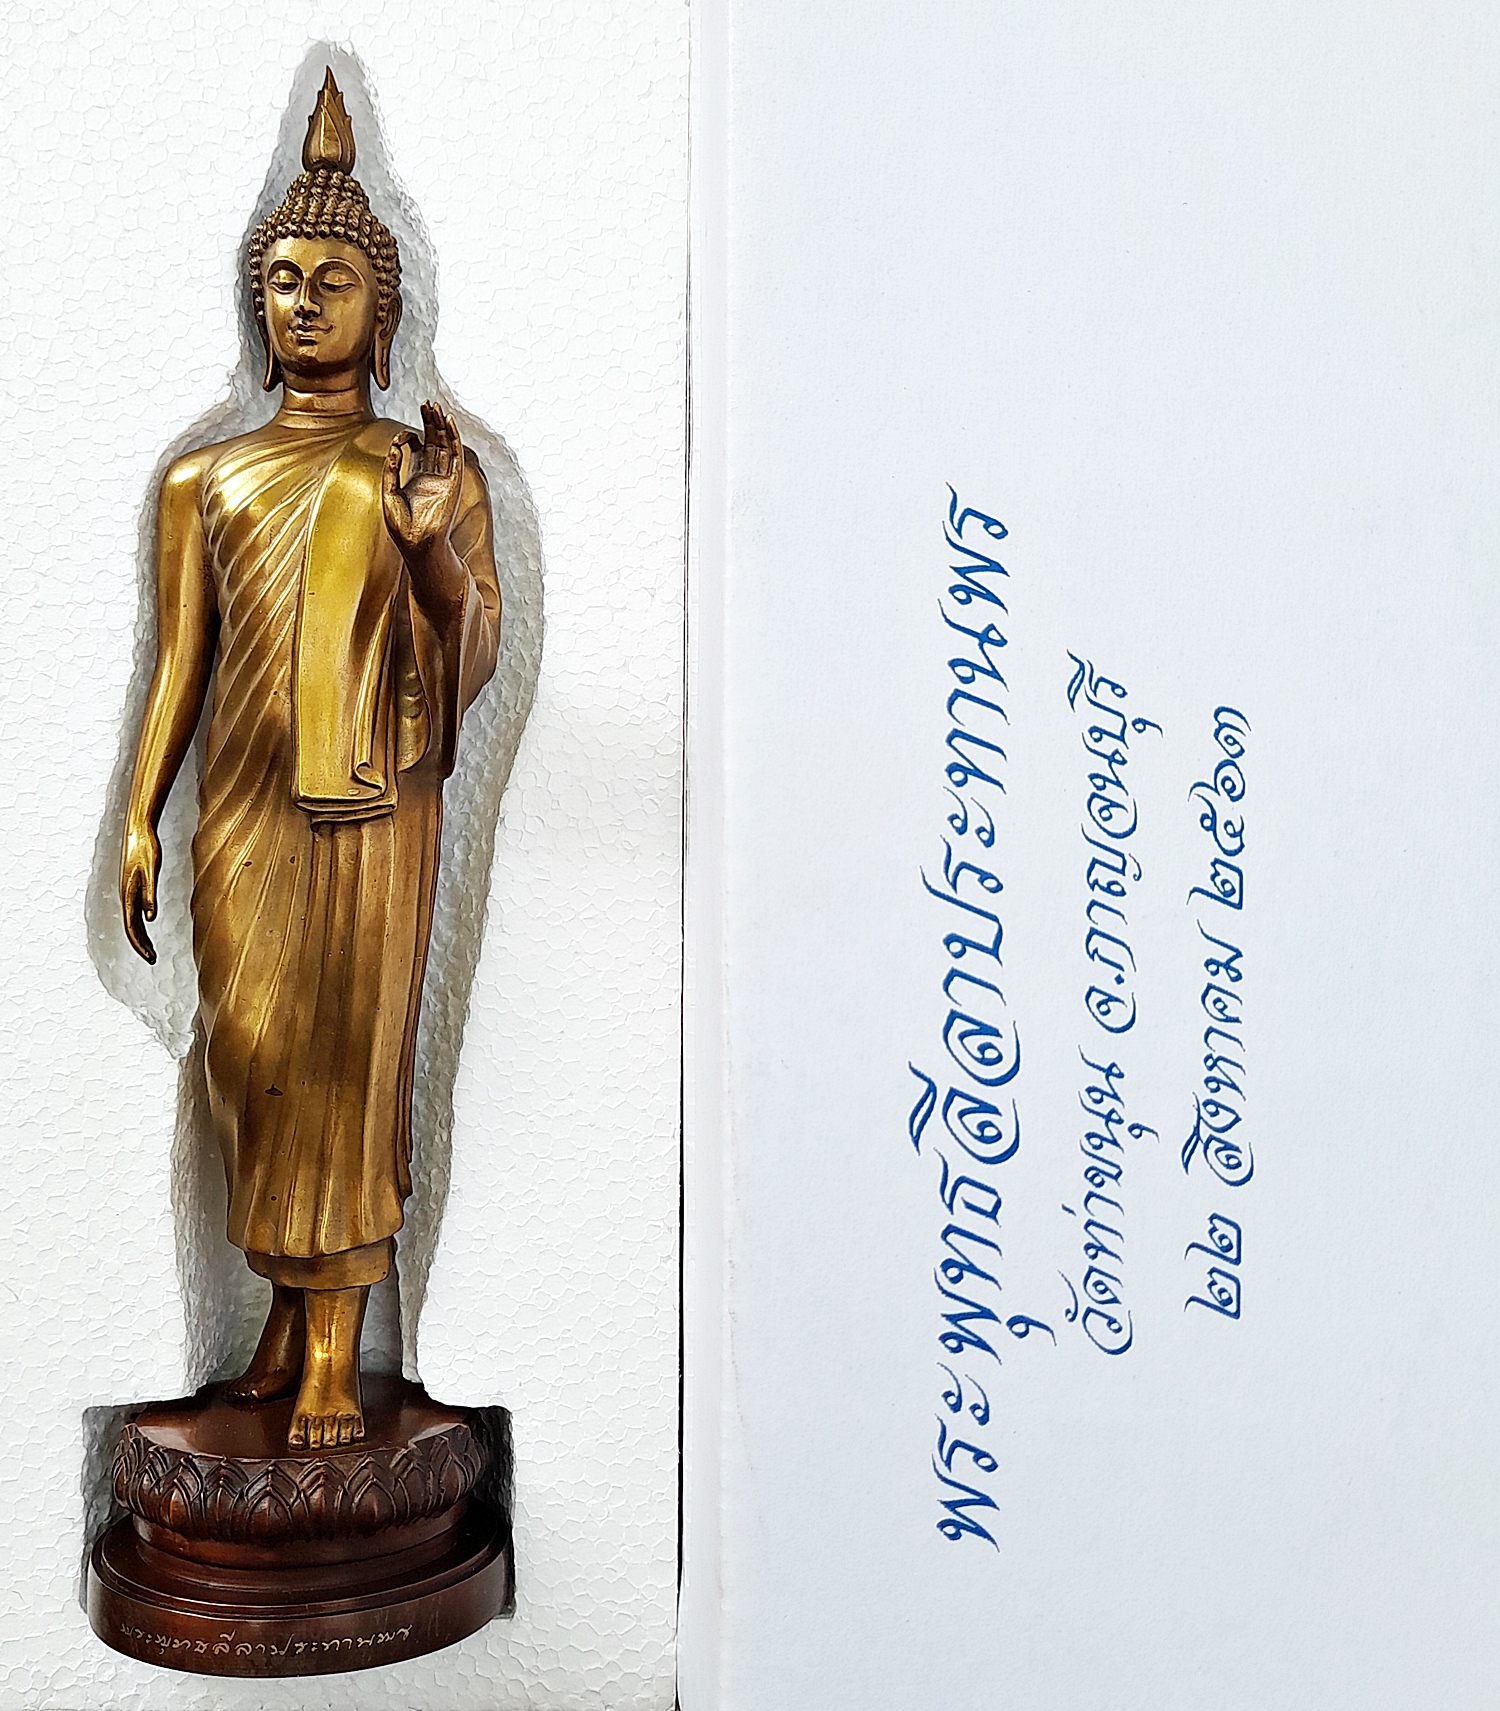 พระพุทธลีลาประทานพร
วัดท่าขนุน จ.กาญจนบุรี
๒๒ สิงหาคม ๒๕๖๓
พระพุทธลีลาประทานพร